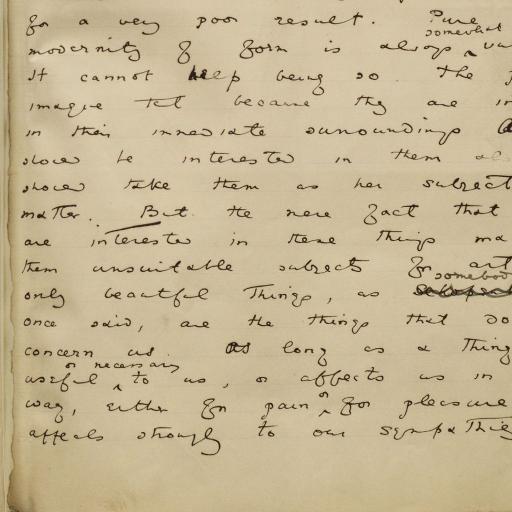 for a very poor result. Pure
modernity of form is always somewhat
It cannot help being so. The
imagine that because they are in
in their immediate surroundings
should be interested in them
should take them as her subject
matter. But the mere fact that
are interested in these things
them unsuitable subjects for art
only beautiful things, as somebody
once said, are the things that do
concern us. As long as a thing
useful or necessary to us, or affects us in
way, either for pain or for pleasure
appeals strongly to our